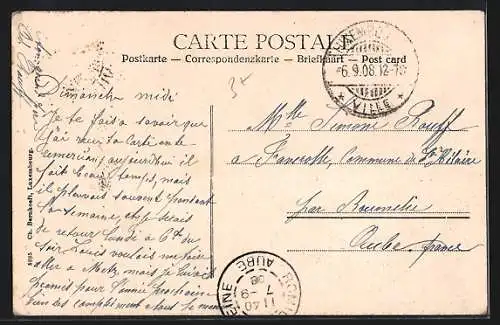 CARTE POSTALE
Postkarte — Correspondenzkarte — Briefkaart — Post card
LUXEMBOURG
6.9.08.12-
VILLE
3x
Dimanche midi
Je te fait a savoir que
j'ai reçu ta Carte en te
remerciant aujourd'hui il
fait beau temps, mais
il pleuvait souvent pendant
la semaine, et je serais
de retour lundi à 6 h. du
soir Louis voulais me faire
aller a Metz mais je lui
promis pour l'année prochaine
bien des compliments a tout le monde
Mlle Simone
à Francrotte, Commune de St Hilaire
par
Aube. france
AUBE
11 40
7 -9
08
Ch. Bernhoeft, Luxembourg.